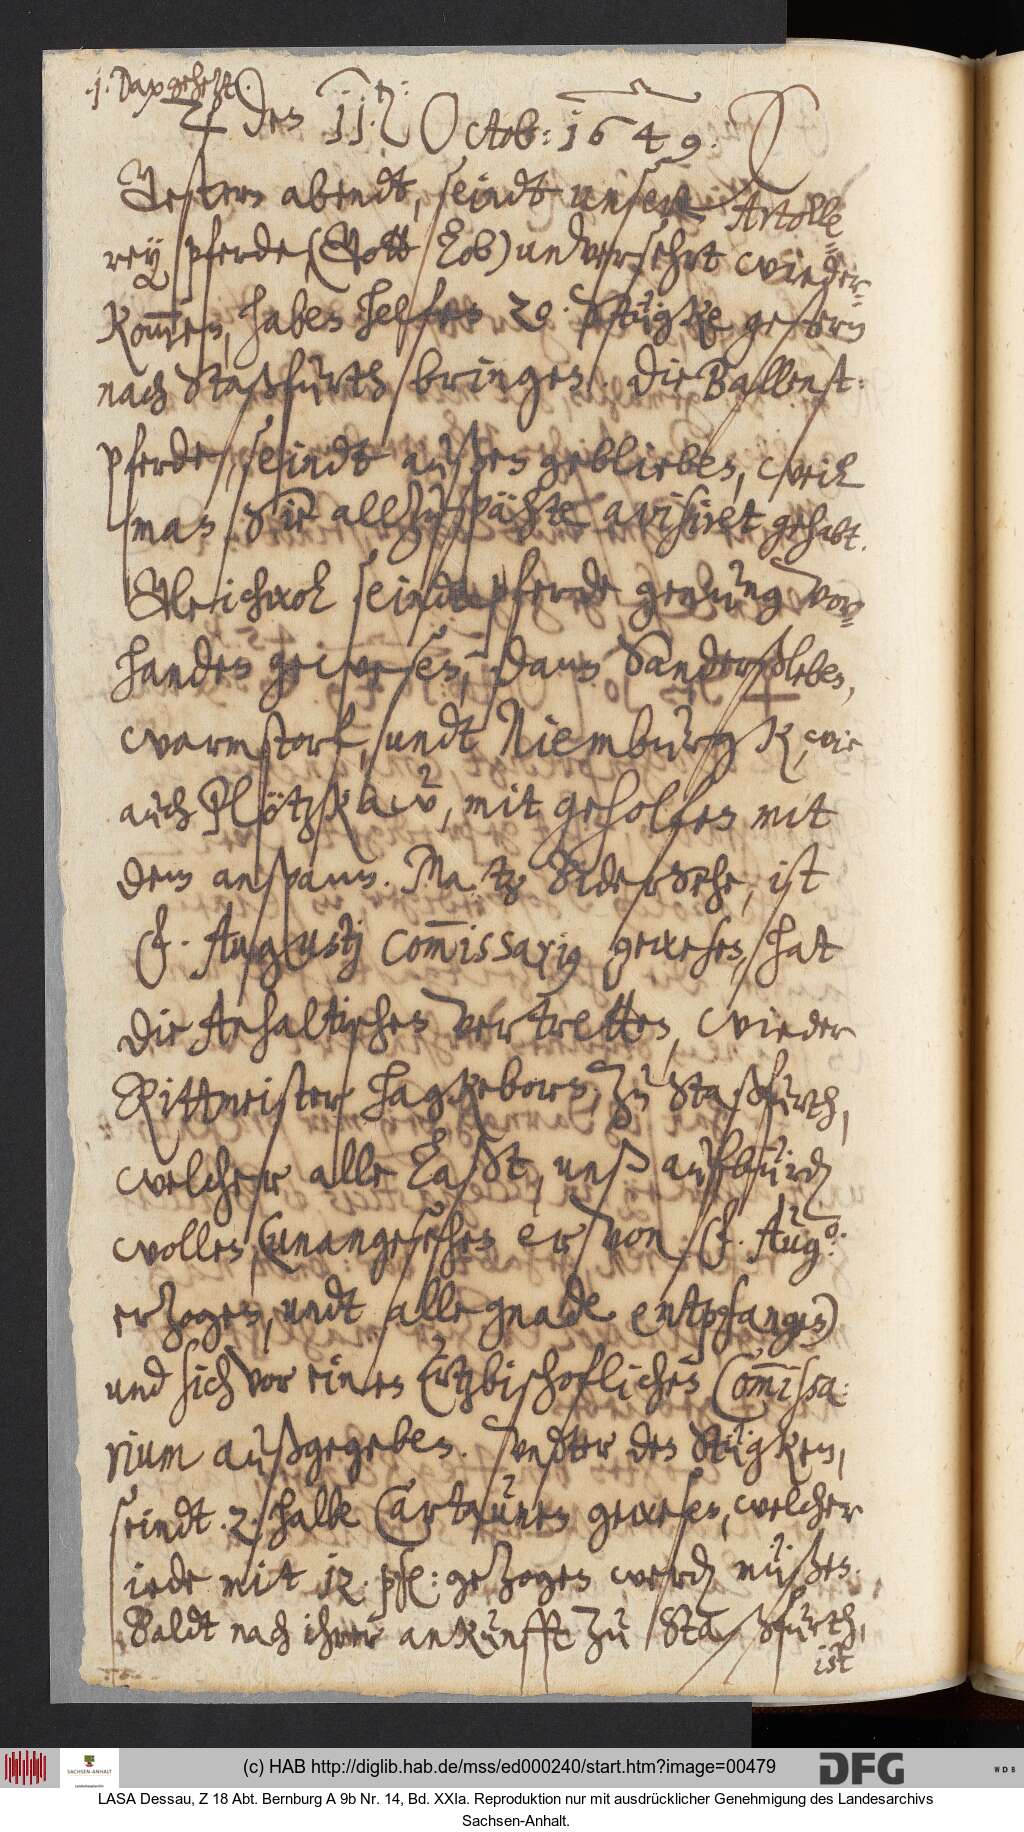 .j. Dax gehetzt.
♃ den 11.ten: October: 1649.
Gestern abendt, seindt unsere Artolle=
rey pferde, (Gott Lob) undversehrt wieder=
kommen, haben helfen 20. Stügke gestern
nach Staßfurth bringen, die Ballenst:
pferde, seindt außen geblieben, weil
man Sie allzuspähte avisiret gehabt.
Gleichwol seindt pferde genung vor=
handen gewesen, dann Sanderßleben,
warmstorf, undt Niemburgk, wie
auch Plötzkaw, mit geholfen mit
dem anspann. Matz Sidersehe, ist
F. Augustj Commissarius gewesen, hat
die Anhaltischen vertretten, wieder
Rittmeister Hagkeborn, zu Staßfurth,
welcher alle Last, unß aufbürden
wollen, (unangesehen er von F. Augo:
erzogen, undt alle gnade entpfangen)
und sich vor einen Ertzbischoflichen Commissa:
rium außgegeben. Undter den Stügken,
seindt .2. halbe Cartaunen gewesen, welcher
iede mit 12. pf: gezogen werden müßen.
Baldt nach ihrer ankunfft zu Staßfurth,
ist
(c) HAB http://diglib.hab.de/mss/ed000240/start.htm?image=00479
SACHSEN-ANHALT
DFG
WDB
LASA Dessau, Z 18 Abt. Bernburg A 9b Nr. 14, Bd. XXIa. Reproduktion nur mit ausdrücklicher Genehmigung des Landesarchivs
Sachsen-Anhalt.